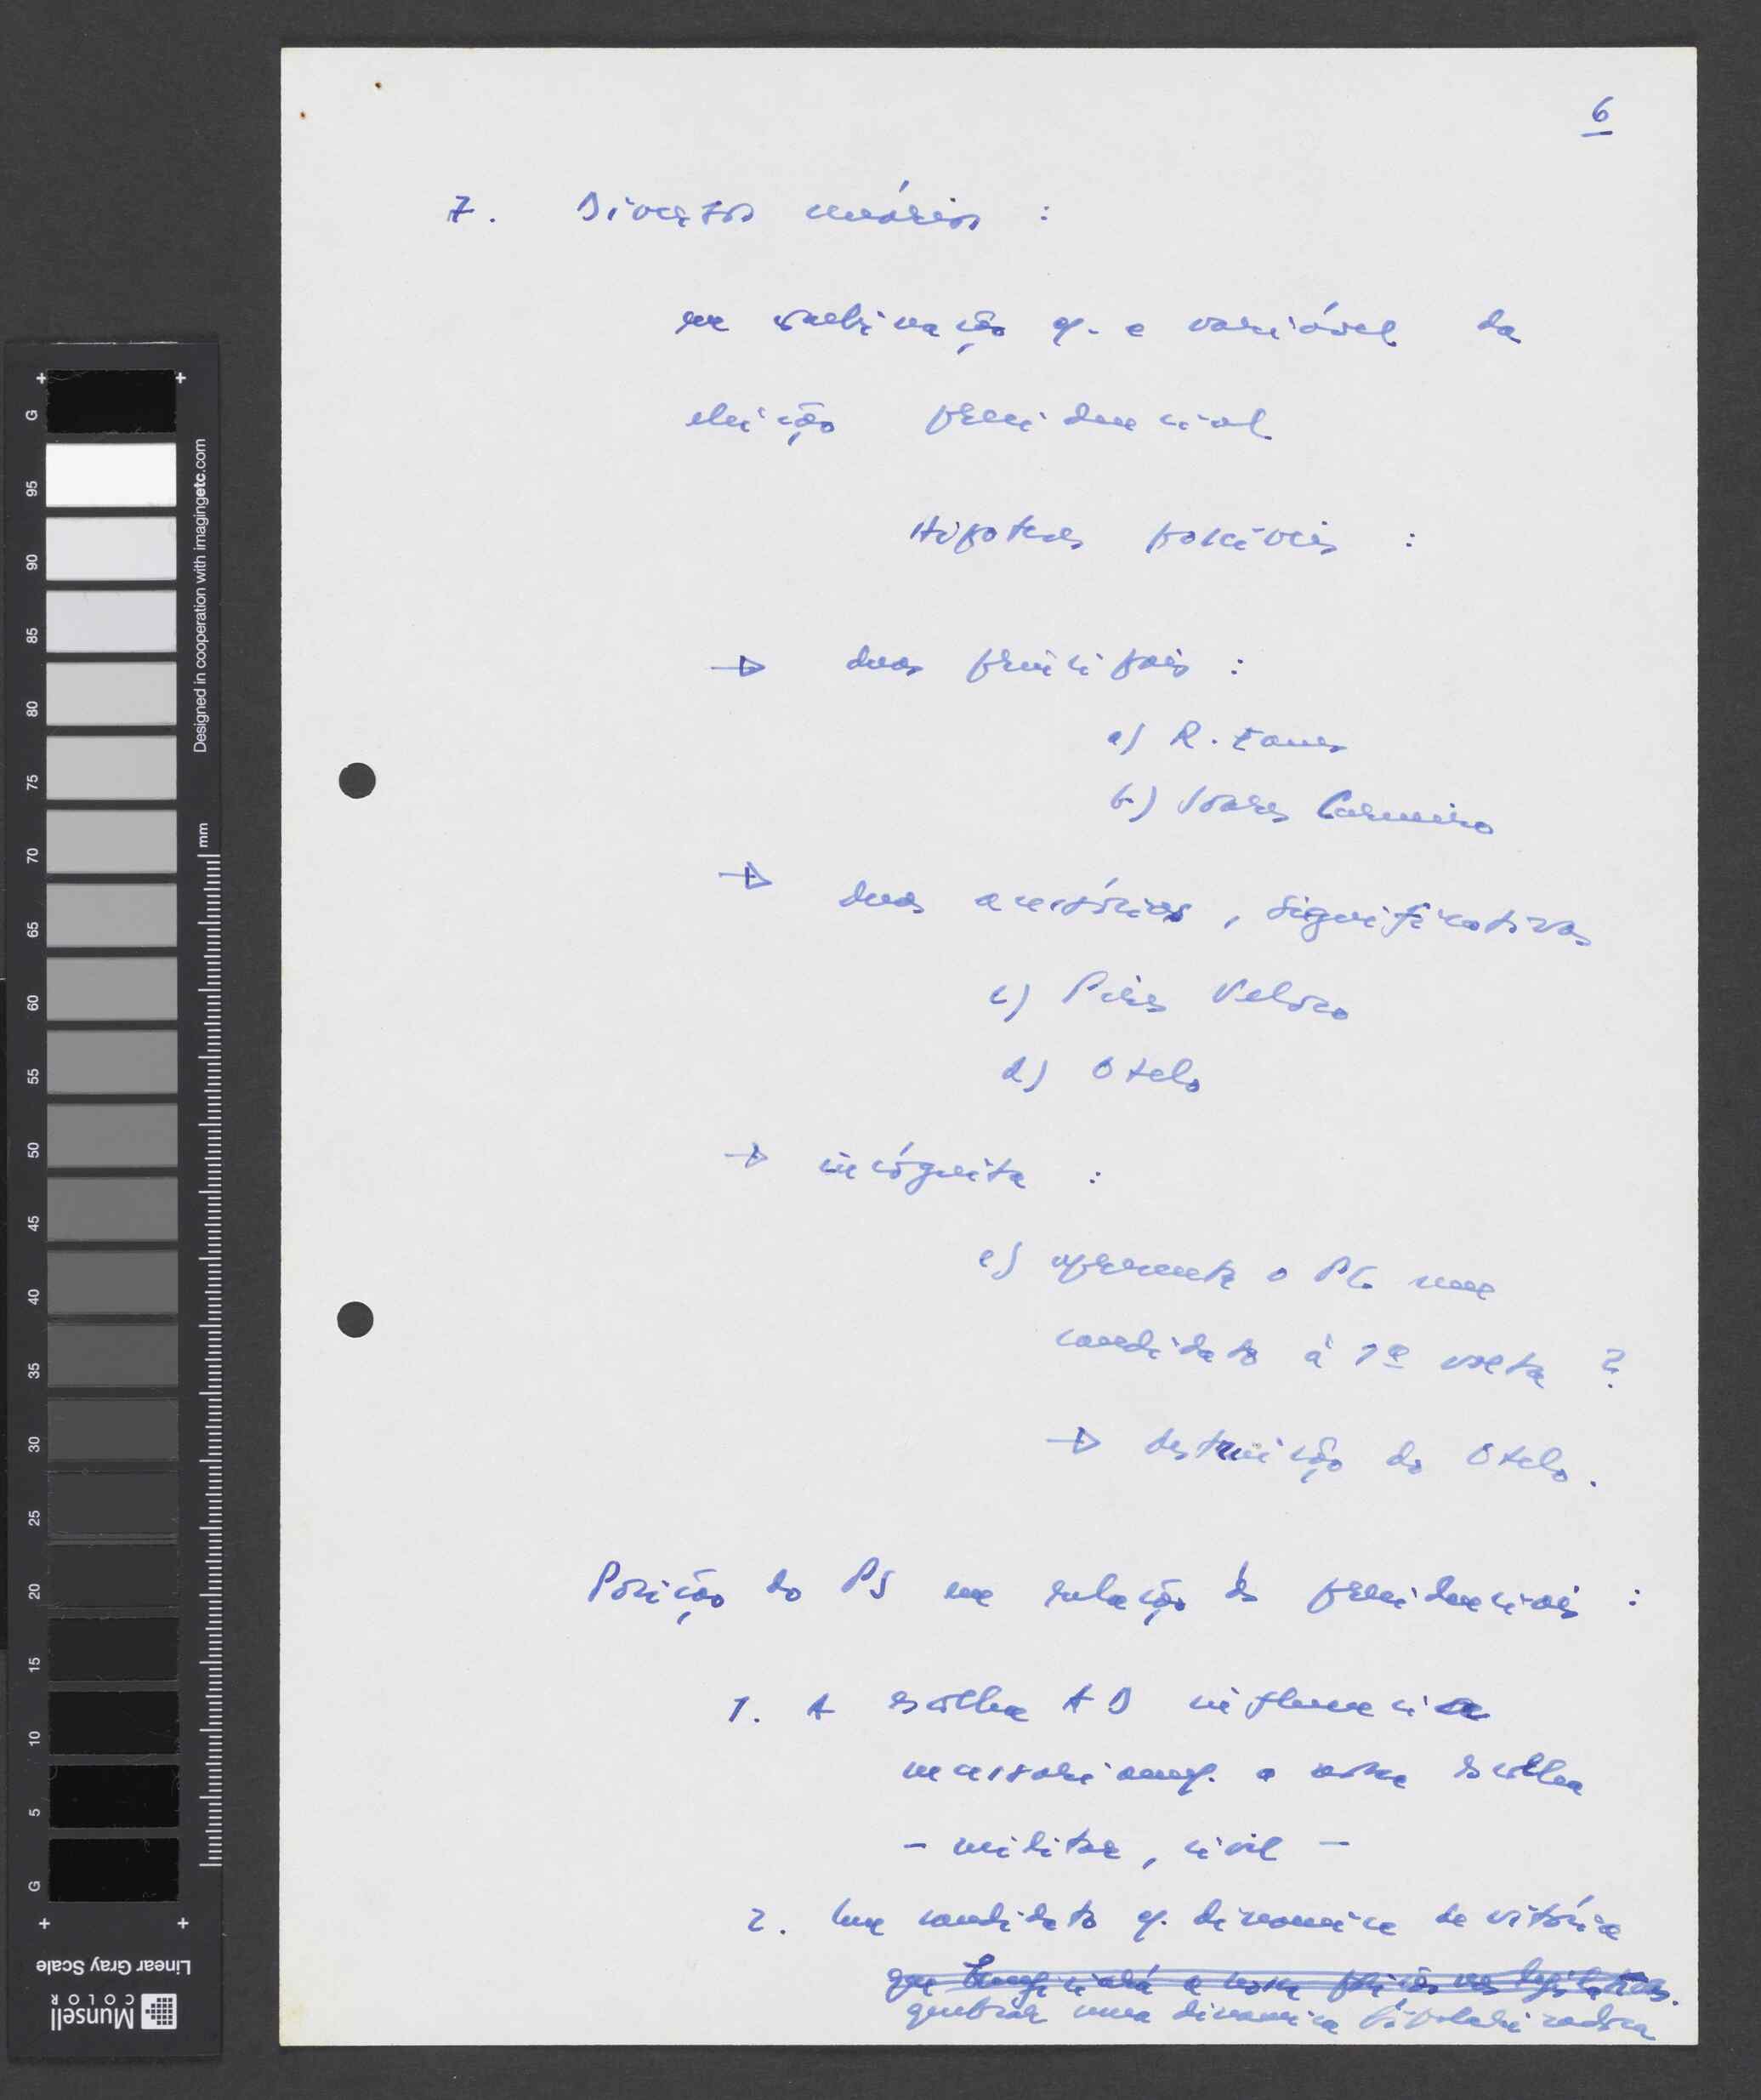 6
7. Diversos cenários :
em combinação c/ a variável da
eleição presidencial
Hipoteses possíveis :
→ duas principais :
a) R. Eanes
b) Soares Carneiro
→ duas acessórias, significativas
c) Pires Veloso
d) Otelo
→ incógnita :
e) apresenta o PC um
candidato à 1ª volta ?
→ destruição do Otelo.
Posição do PS em relação às presidenciais :
1. A escolha AD influencia
necessariamt. a nossa escolha
- militar, civil -
2. Um candidato c/ dinamica de vitória
que a nossa posição nas legislativas.
quebrar uma dinamica bipolarizadora
G
95
90
85
80
75
70
65
60
55
50
45
40
35
30
25
20
15
10
5
G
Designed in cooperation with imagingetc.com
mm
Linear Gray Scale
Munsell
COLOR